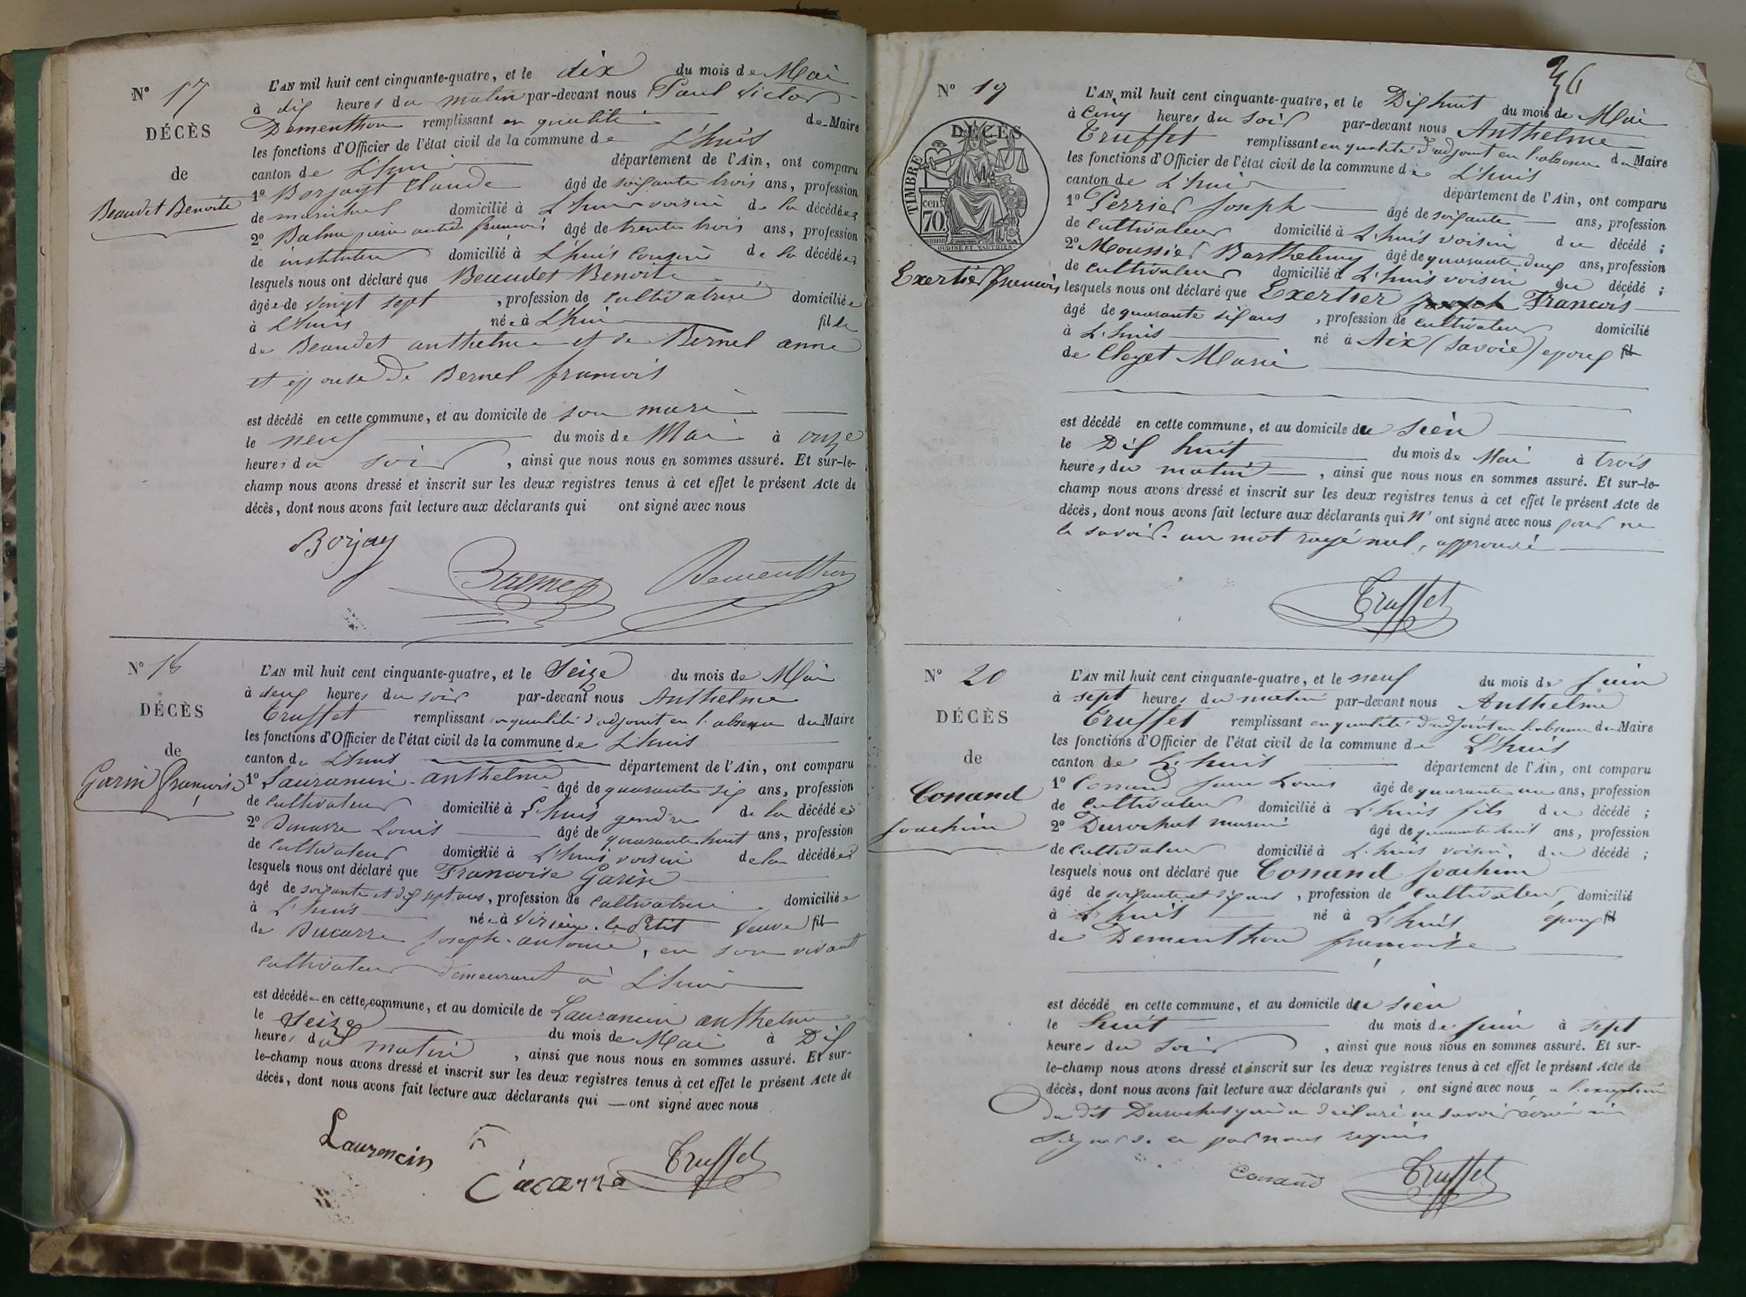 N° 17
DÉCÈS
de
Beaudet Benoite
L'AN mil huit cent cinquante-quatre, et le dix du mois de Mai
à dix heures du matin par-devant nous Paul Victor
Dementhon remplissant en qualité de Maire
les fonctions d'Officier de l'état civil de la commune de L'huis
canton de L'huis département de l'Ain, ont comparu
1° Borjay Claude âgé de soixante trois ans, profession
de domicilié à L'huis voisin de la décédée;
2° Balme âgé de trente trois ans, profession
de instituteur domicilié à L'huis cousin de la décédée;
lesquels nous ont déclaré que Beaudet Benoite
âgée de vingt sept, profession de cultivatrice domiciliée
à L'huis née à L'huis fille
de Beaudet anthelme et de Bernel anne
et épouse de Bernel francois
est décédé en cette commune, et au domicile de son mari
le neuf du mois de Mai à onze
heures du soir, ainsi que nous nous en sommes assuré. Et sur-le-
champ nous avons dressé et inscrit sur les deux registres tenus à cet effet le présent Acte de
décès, dont nous avons fait lecture aux déclarants qui ont signé avec nous
Borjay
Dementhon
N° 18
DÉCÈS
de
Garin françoise
L'AN mil huit cent cinquante-quatre, et le Seize du mois de Mai
à deux heures du soir par-devant nous Anthelme
Truffet remplissant en qualité d'adjoint en l'absence du Maire
les fonctions d'Officier de l'état civil de la commune de L'huis
canton de L'huis département de l'Ain, ont comparu
1° Laurancin anthelme âgé de quarante six ans, profession
de cultivateur domicilié à L'huis gendre de la décédée
2° Ducarre Louis âgé de quarante huit ans, profession
de cultivateur domicilié à L'huis voisin de la décédée
lesquels nous ont déclaré que Francoise Garin
âgé de soixante et dix sept ans, profession de cultivatrice domiciliée
à L'huis née à Virieu-le-Petit veuve fil
de Ducarre Joseph-antoine, en son vivant
cultivateur demeurant à L'huis
est décédée en cette commune, et au domicile de Laurancin anthelme
le seize du mois de Mai à Dix
heures du matin, ainsi que nous nous en sommes assuré. Et sur-
le-champ nous avons dressé et inscrit sur les deux registres tenus à cet effet le présent Acte de
décès, dont nous avons fait lecture aux déclarants qui ont signé avec nous
Laurencin
Truffet
36
N° 19
DÉCÈS
TIMBRE
cen
70
Exertier francois
L'AN mil huit cent cinquante-quatre, et le Dix huit du mois de Mai
à Cinq heures du soir par-devant nous Anthelme
Truffet remplissant en qualité d'adjoint en l'absence du Maire
les fonctions d'Officier de l'état civil de la commune de L'huis
canton de L'huis département de l'Ain, ont comparu
1° Perrier Joseph âgé de soixante ans, profession
de cultivateur domicilié à L'huis voisin du décédé;
2° Moussier Barthelemy âgé de quarante deux ans, profession
de cultivateur domicilié à L'huis voisin du décédé;
lesquels nous ont déclaré que Exertier Joseph Francois
âgé de quarante six ans, profession de cultivateur domicilié
à L'huis né à Aix (Savoie) époux fil
de Cleyet Marie
est décédé en cette commune, et au domicile du sien
le Dix huit du mois de Mai à trois
heures du matin, ainsi que nous nous en sommes assuré. Et sur-le-
champ nous avons dressé et inscrit sur les deux registres tenus à cet effet le présent Acte de
décès, dont nous avons fait lecture aux déclarants qui n'ont signé avec nous pour ne
le savoir. un mot rayé nul, approuvé
Truffet
N° 20
DÉCÈS
de
Conand
Joachim
L'AN mil huit cent cinquante-quatre, et le neuf du mois de Juin
à sept heures du matin par-devant nous Anthelme
Truffet remplissant en qualité d'adjoint en l'absence du Maire
les fonctions d'Officier de l'état civil de la commune de L'huis
canton de L'huis département de l'Ain, ont comparu
1° Conand Jean Louis âgé de quarante un ans, profession
de cultivateur domicilié à L'huis fils du décédé;
2° Durochat marin âgé de quarante huit ans, profession
de cultivateur domicilié à L'huis voisin, du décédé;
lesquels nous ont déclaré que Conand Joachim
âgé de soixante et six ans, profession de cultivateur domicilié
à L'huis né à L'huis époux fil
de Demanthon francoise
est décédé en cette commune, et au domicile du sien
le huit du mois de Juin à sept
heures du soir, ainsi que nous nous en sommes assuré. Et sur-
le-champ nous avons dressé et inscrit sur les deux registres tenus à cet effet le présent Acte de
décès, dont nous avons fait lecture aux déclarants qui ont signé avec nous
du dit Durochat qui a déclaré ne savoir
signer de ce par nous requis
Conand
Truffet